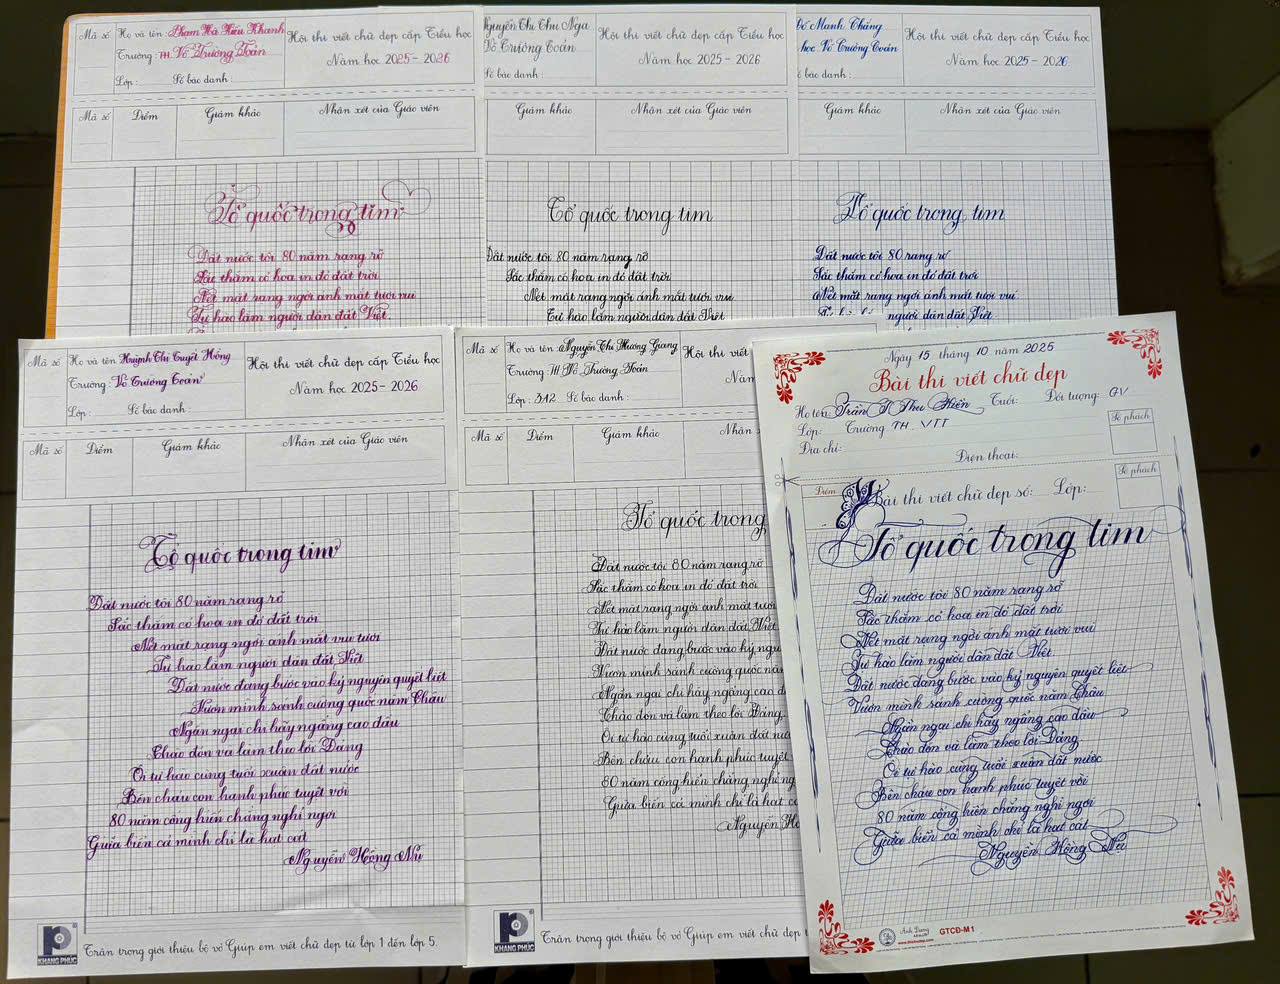 Mã số
Họ và tên: Phạm Hà Kiều Khanh
Trường: TH. Võ Trường Toản
Lớp: Số báo danh:
Hội thi viết chữ đẹp cấp Tiểu học
Năm học 2025 - 2026
Mã số Điểm Giám khảo Nhận xét của Giáo viên
Tổ quốc trong tim
Đất nước tôi 80 năm rạng rỡ
Sắc thắm cỏ hoa in đỏ đất trời
Nét mặt rạng ngời ánh mắt tươi vui
Tự hào lắm người dân đất Việt
Nguyễn Thị Thu Nga
Võ Trường Toản
Số báo danh:
Hội thi viết chữ đẹp cấp Tiểu học
Năm học 2025 - 2026
Giám khảo Nhận xét của Giáo viên
Tổ quốc trong tim
Đất nước tôi 80 năm rạng rỡ
Sắc thắm cỏ hoa in đỏ đất trời
Nét mặt rạng ngời ánh mắt tươi vui
Tự hào lắm người dân đất Việt
Đỗ Mạnh Thắng
học Võ Trường Toản
Số báo danh:
Hội thi viết chữ đẹp cấp Tiểu học
Năm học 2025 - 2026
Giám khảo Nhận xét của Giáo viên
Tổ quốc trong tim
Đất nước tôi 80 rạng rỡ
Sắc thắm cỏ hoa in đỏ đất trời
Nét mặt rạng ngời ánh mắt tươi vui
người dân đất Việt
Mã số
Họ và tên: Huỳnh Thị Tuyết Hồng
Trường: Võ Trường Toản
Lớp: Số báo danh:
Hội thi viết chữ đẹp cấp Tiểu học
Năm học 2025 - 2026
Mã số Điểm Giám khảo Nhận xét của Giáo viên
Tổ quốc trong tim
Đất nước tôi 80 năm rạng rỡ
Sắc thắm cỏ hoa in đỏ đất trời
Nét mặt rạng ngời ánh mắt vui tươi
Tự hào lắm người dân đất Việt
Đất nước đang bước vào kỷ nguyên quyết liệt
Vươn mình sánh cường quốc năm Châu
Ngần ngại chi hãy ngẩng cao đầu
Chào đón và làm theo lời Đảng
Ôi tự hào cùng tuổi xuân đất nước
Bên cháu con hạnh phúc tuyệt vời
80 năm cống hiến chẳng nghỉ ngơi
Giữa biển cả mình chỉ là hạt cát
Nguyễn Hồng Nụ
KHANG PHÚC
Trân trọng giới thiệu bộ vở Giúp em viết chữ đẹp từ lớp 1 đến lớp 5.
Mã số
Họ và tên: Nguyễn Thị Hương Giang
Trường: TH Võ Trường Toản
Lớp: 3A2 Số báo danh:
Hội thi viết
Năm
Mã số Điểm Giám khảo Nhận x
Tổ quốc trong
Đất nước tôi 80 năm rạng rỡ
Sắc thắm cỏ hoa in đỏ đất trời
Nét mặt rạng ngời ánh mắt tươi
Tự hào lắm người dân đất Việt
Đất nước đang bước vào kỷ ngu
Vươn mình sánh cường quốc năm
Ngần ngại chi hãy ngẩng cao đ
Chào đón và làm theo lời Đảng
Ôi tự hào cùng tuổi xuân đất nư
Bên cháu con hạnh phúc tuyệt
80 năm cống hiến chẳng nghỉ ng
Giữa biển cả mình chỉ là hạt c
Nguyễn Hồ
KHANG PHÚC
Trân trọng giới thiệu bộ vở Giúp em viết chữ đẹp từ l
Ngày 15 tháng 10 năm 2025
Bài thi viết chữ đẹp
Họ tên: Trần T Thu Hiền Tuổi: Đối tượng: GV
Lớp: Trường TH. VTT
Địa chỉ:
Điện thoại:
Số phách
Điểm
Bài thi viết chữ đẹp số: Lớp:
Số phách
Tổ quốc trong tim
Đất nước tôi 80 năm rạng rỡ
Sắc thắm cỏ hoa in đỏ đất trời
Nét mặt rạng ngời ánh mắt tươi vui
Tự hào lắm người dân đất Việt
Đất nước đang bước vào kỷ nguyên quyết liệt
Vươn mình sánh cường quốc năm Châu
Ngần ngại chi hãy ngẩng cao đầu
Chào đón và làm theo lời Đảng
Ôi tự hào cùng tuổi xuân đất nước
Bên cháu con hạnh phúc tuyệt vời
80 năm cống hiến chẳng nghỉ ngơi
Giữa biển cả mình chỉ là hạt cát
Nguyễn Hồng Nụ
Ánh Dương
GTCD-M1